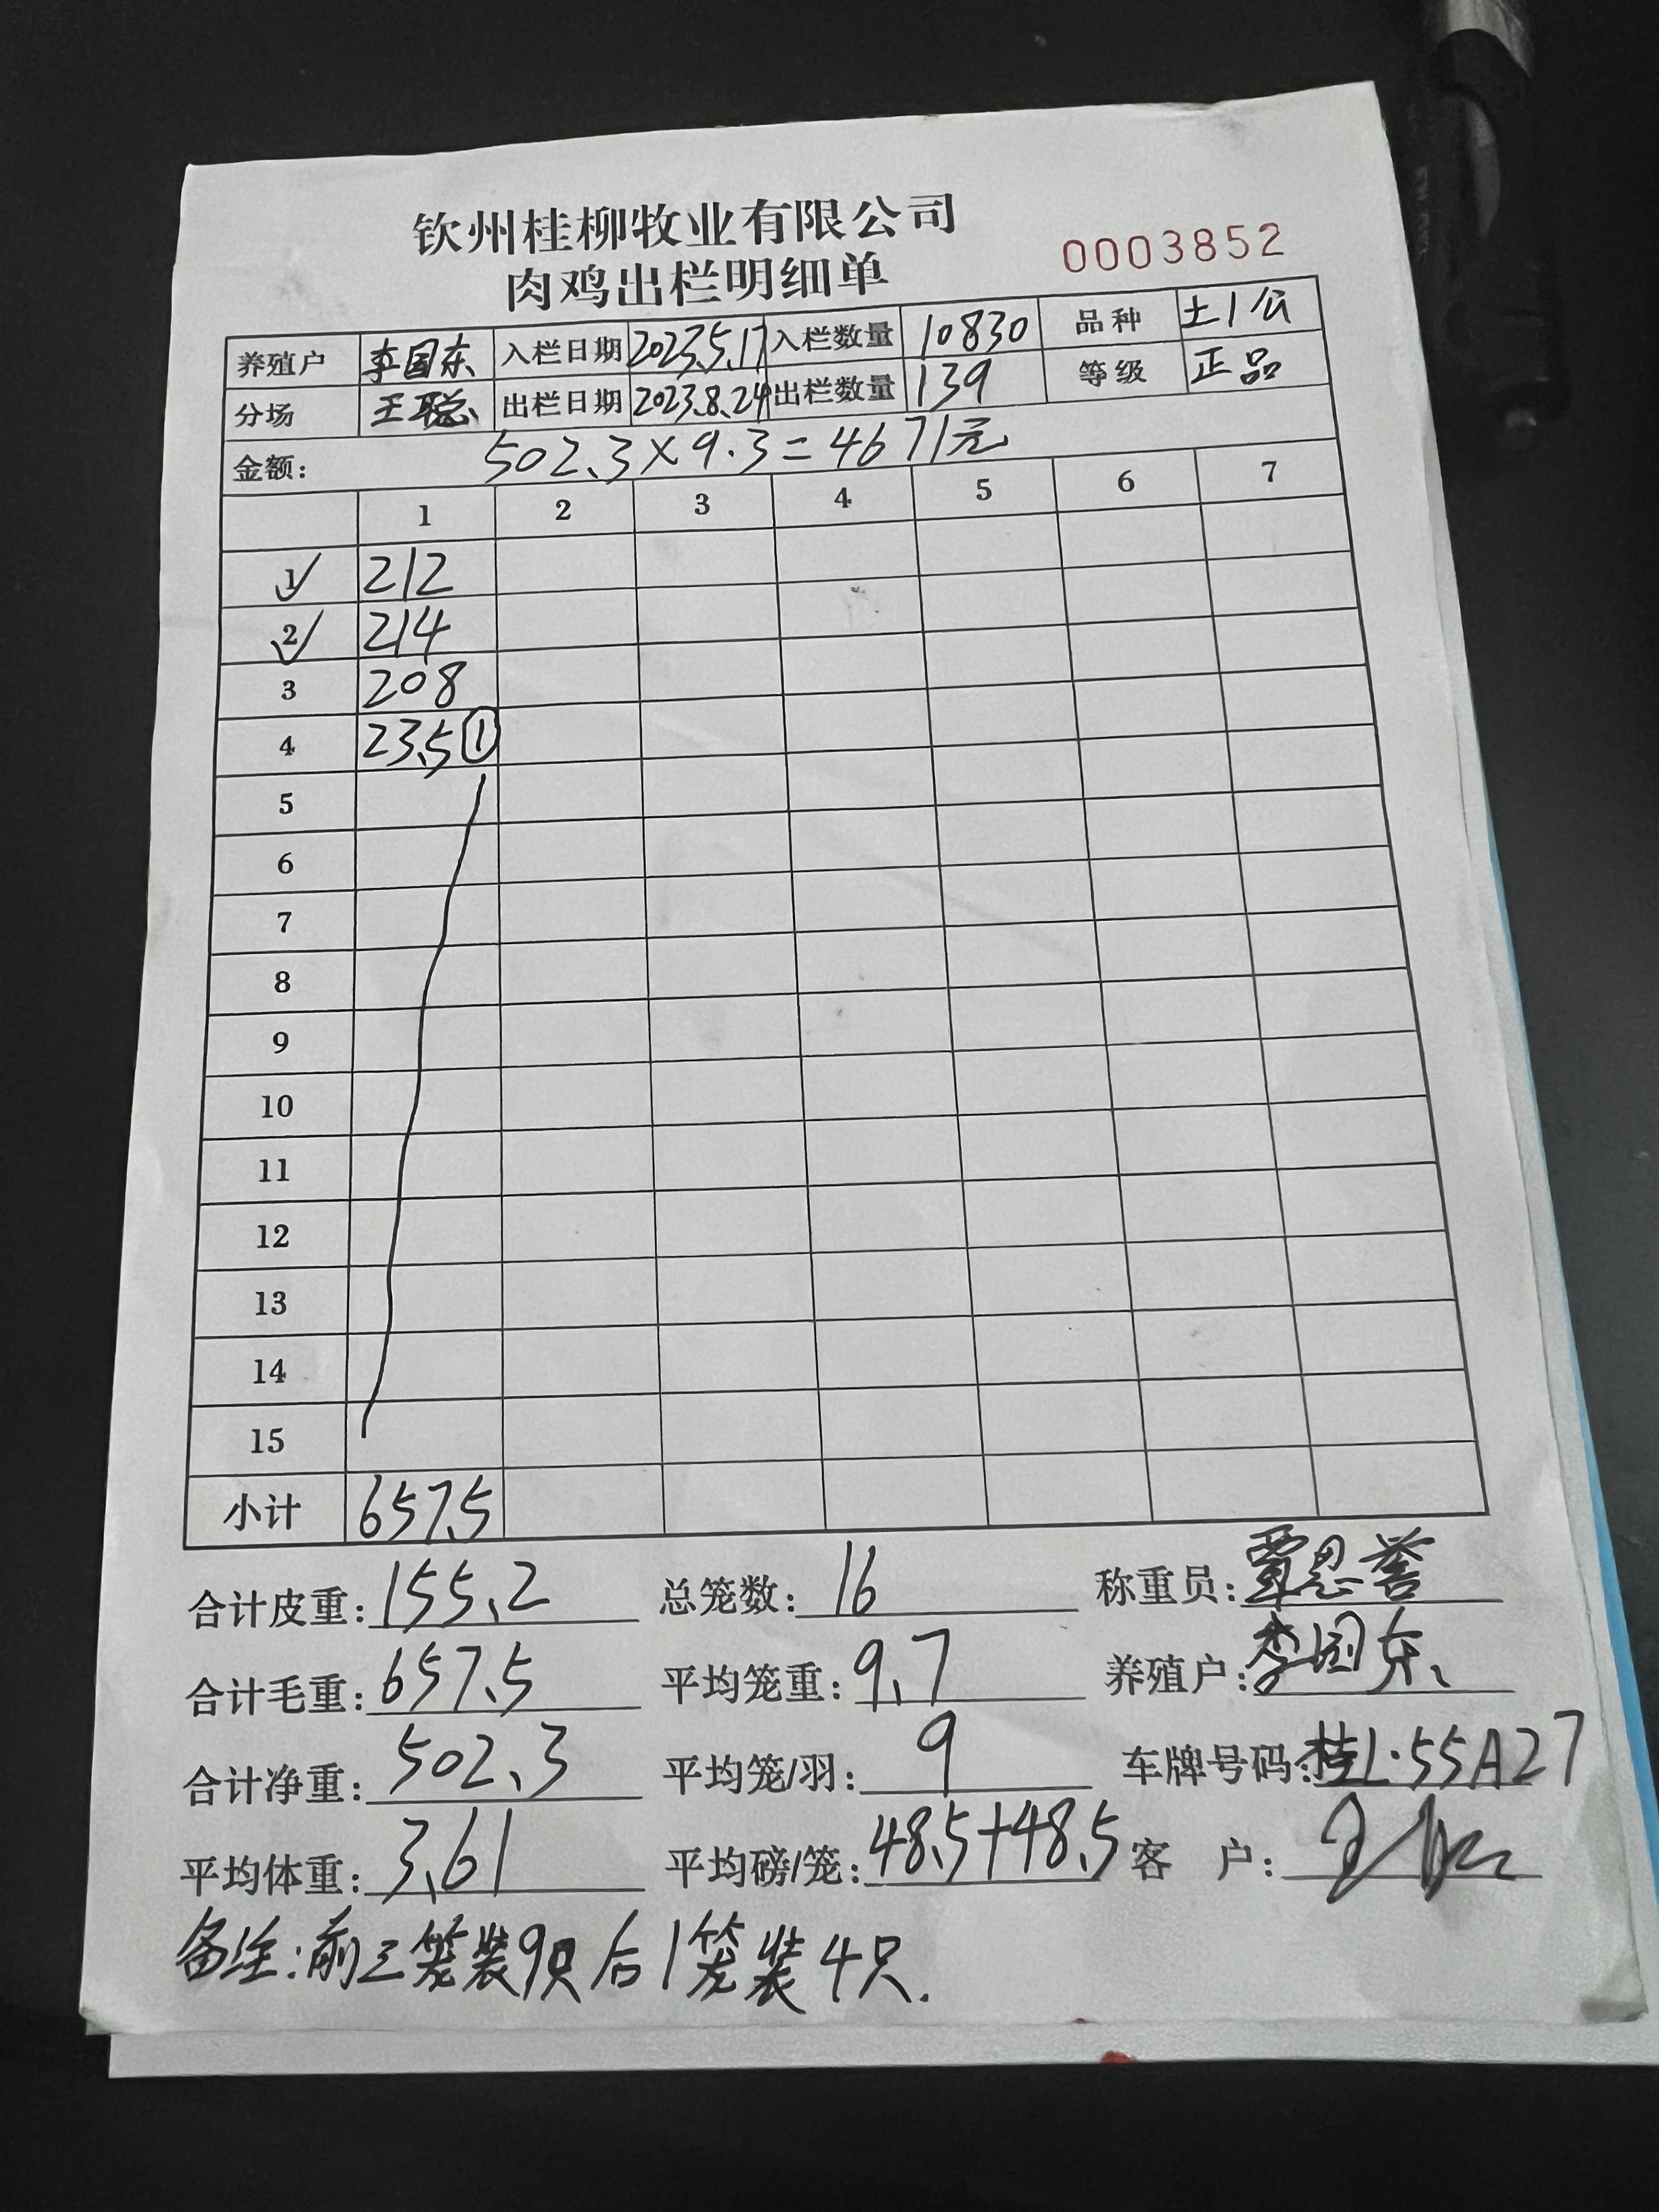 钦州桂柳牧业有限公司
肉鸡出栏明细单
0003852
养殖户 李国东 入栏日期 2023.5.17 入栏数量 10830 品种 土1公
分场 王聪 出栏日期 2023.8.24 出栏数量 139 等级 正品
金额: 502.3×9.3=4671元
1 2 3 4 5 6 7
1 212
2 214
3 208
4 23.5 ①
5
6
7
8
9
10
11
12
13
14
15
小计 657.5
合计皮重: 155.2 总笼数: 16 称重员: 覃恩誉
合计毛重: 657.5 平均笼重: 9.7 养殖户: 李国东
合计净重: 502.3 平均笼/羽: 9 车牌号码: 桂L·55A27
平均体重: 3.61 平均磅/笼: 48.5+48.5 客户:
备注:前三笼装9只后1笼装4只.